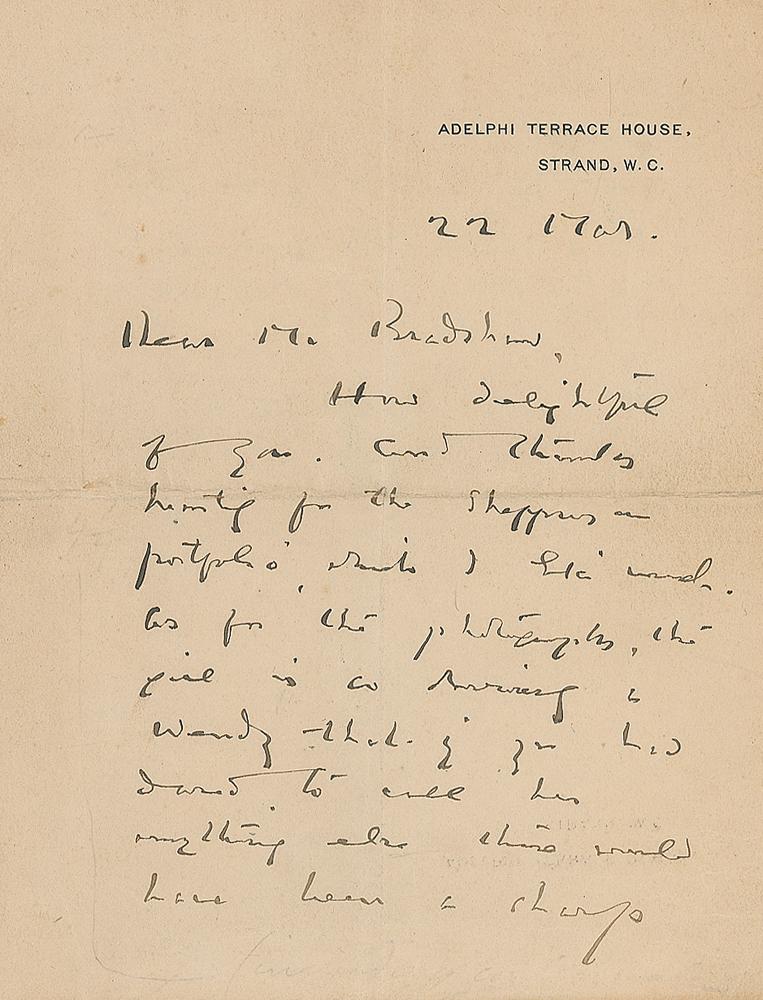 ADELPHI TERRACE HOUSE,
STRAND, W. C.
22 Mar.
Dear Mr Bradshaw,
How delightful
of you. And thanks
heartily for the Shepperson
portfolio, which I like much.
As for the photographs, the
girl is so
Wendy that if you had
dared to call her
anything else there would
have been a sharp